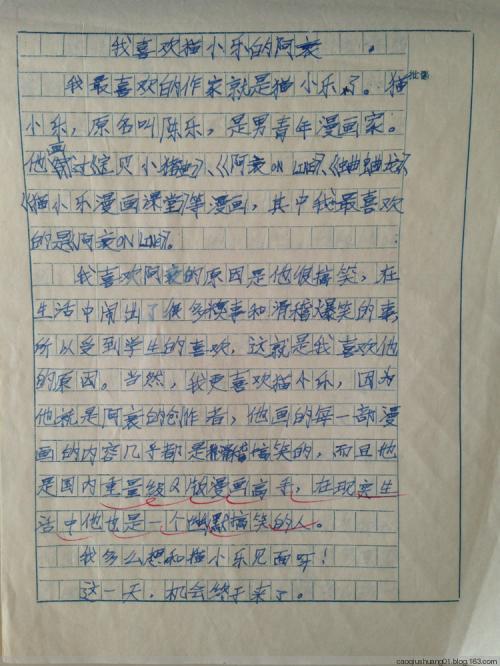 我喜欢猫小乐的阿衰。
我最喜欢的作家就是猫小乐了。猫
小乐，原名叫陈乐，是男青年漫画家。
他画过《宝贝小猪由》、《阿衰ON LINE》、《蛐蛐龙》
《猫小乐漫画课堂》等漫画，其中我最喜欢
的是《阿衰ON LINE》。
我喜欢阿衰的原因是他很搞笑，在
生活中闹出了很多糗事和滑稽爆笑的事，
所以受到学生的喜欢，这就是我喜欢他
的原因。当然，我更喜欢猫小乐，因为
他就是阿衰的创作者，他画的每一部漫
画的内容几乎都是搞笑的，而且他
是国内重量级Q版漫画高手，在现实生
活中他也是一个幽默搞笑的人。
我多么想和猫小乐见面呀！
这一天，机会终于来了。
caoqiushuang01.blog.163.com